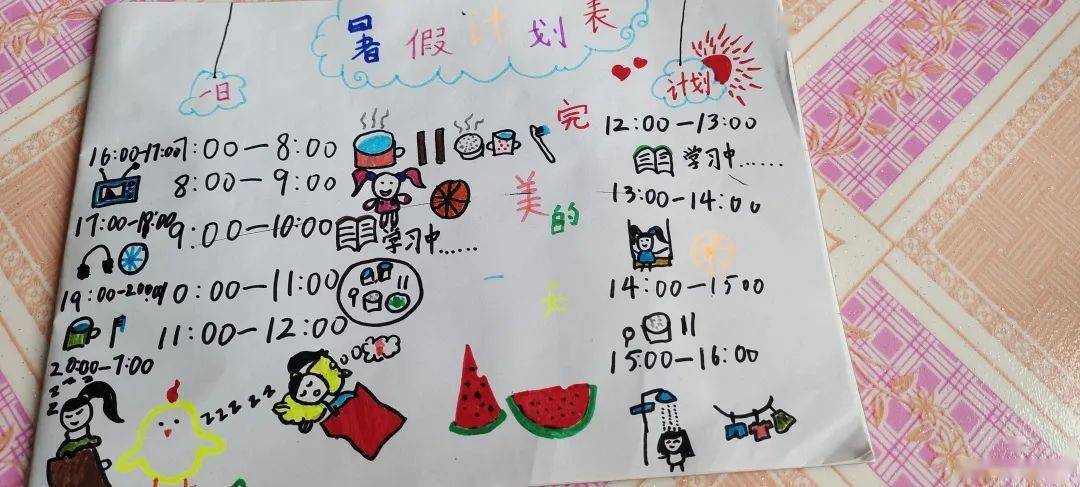 暑假计划表
一日
计划
完美的一天
7:00-8:00
8:00-9:00
9:00-10:00
学习中……
10:00-11:00
11:00-12:00
12:00-13:00
学习中……
13:00-14:00
14:00-1500
15:00-16:00
16:00-17:00
17:00-18:00
19:00-20:00
20:00-7:00
zzz
zzzzz